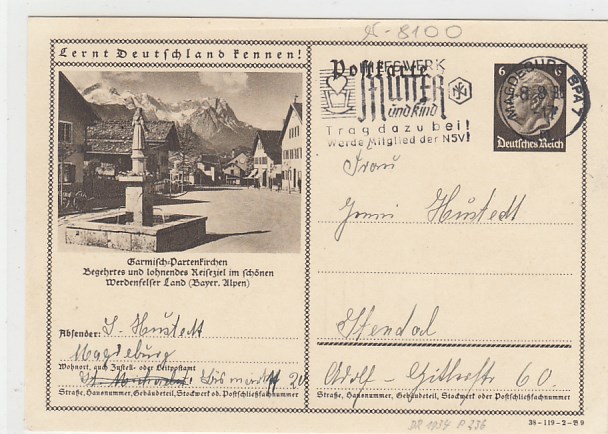 25-8100
Lernt Deutschland kennen!
Garmisch-Partenkirchen
Begehrtes und lohnendes Reiseziel im schönen
Werdenfelser Land (Bayer. Alpen)
Absender: Hustedt
Magdeburg
Wohnort, auch Zustell- oder Leitpostamt
Bismarckstr 20
Straße, Hausnummer, Gebäudeteil, Stockwerk od. Postschließfachnummer
Postkarte
HILFSWERK
MUTTER
und Kind
Trag dazu bei!
Werde Mitglied der NSV!
MAGDEBURG BPA 7
6 6
Deutsches Reich
Frau
Hustedt
Stendal
Adolf-Hitlerstr 60.
Straße, Hausnummer, Gebäudeteil, Stockwerk oder Postschließfachnummer
38-119-2-B9
DR 1934 P 236